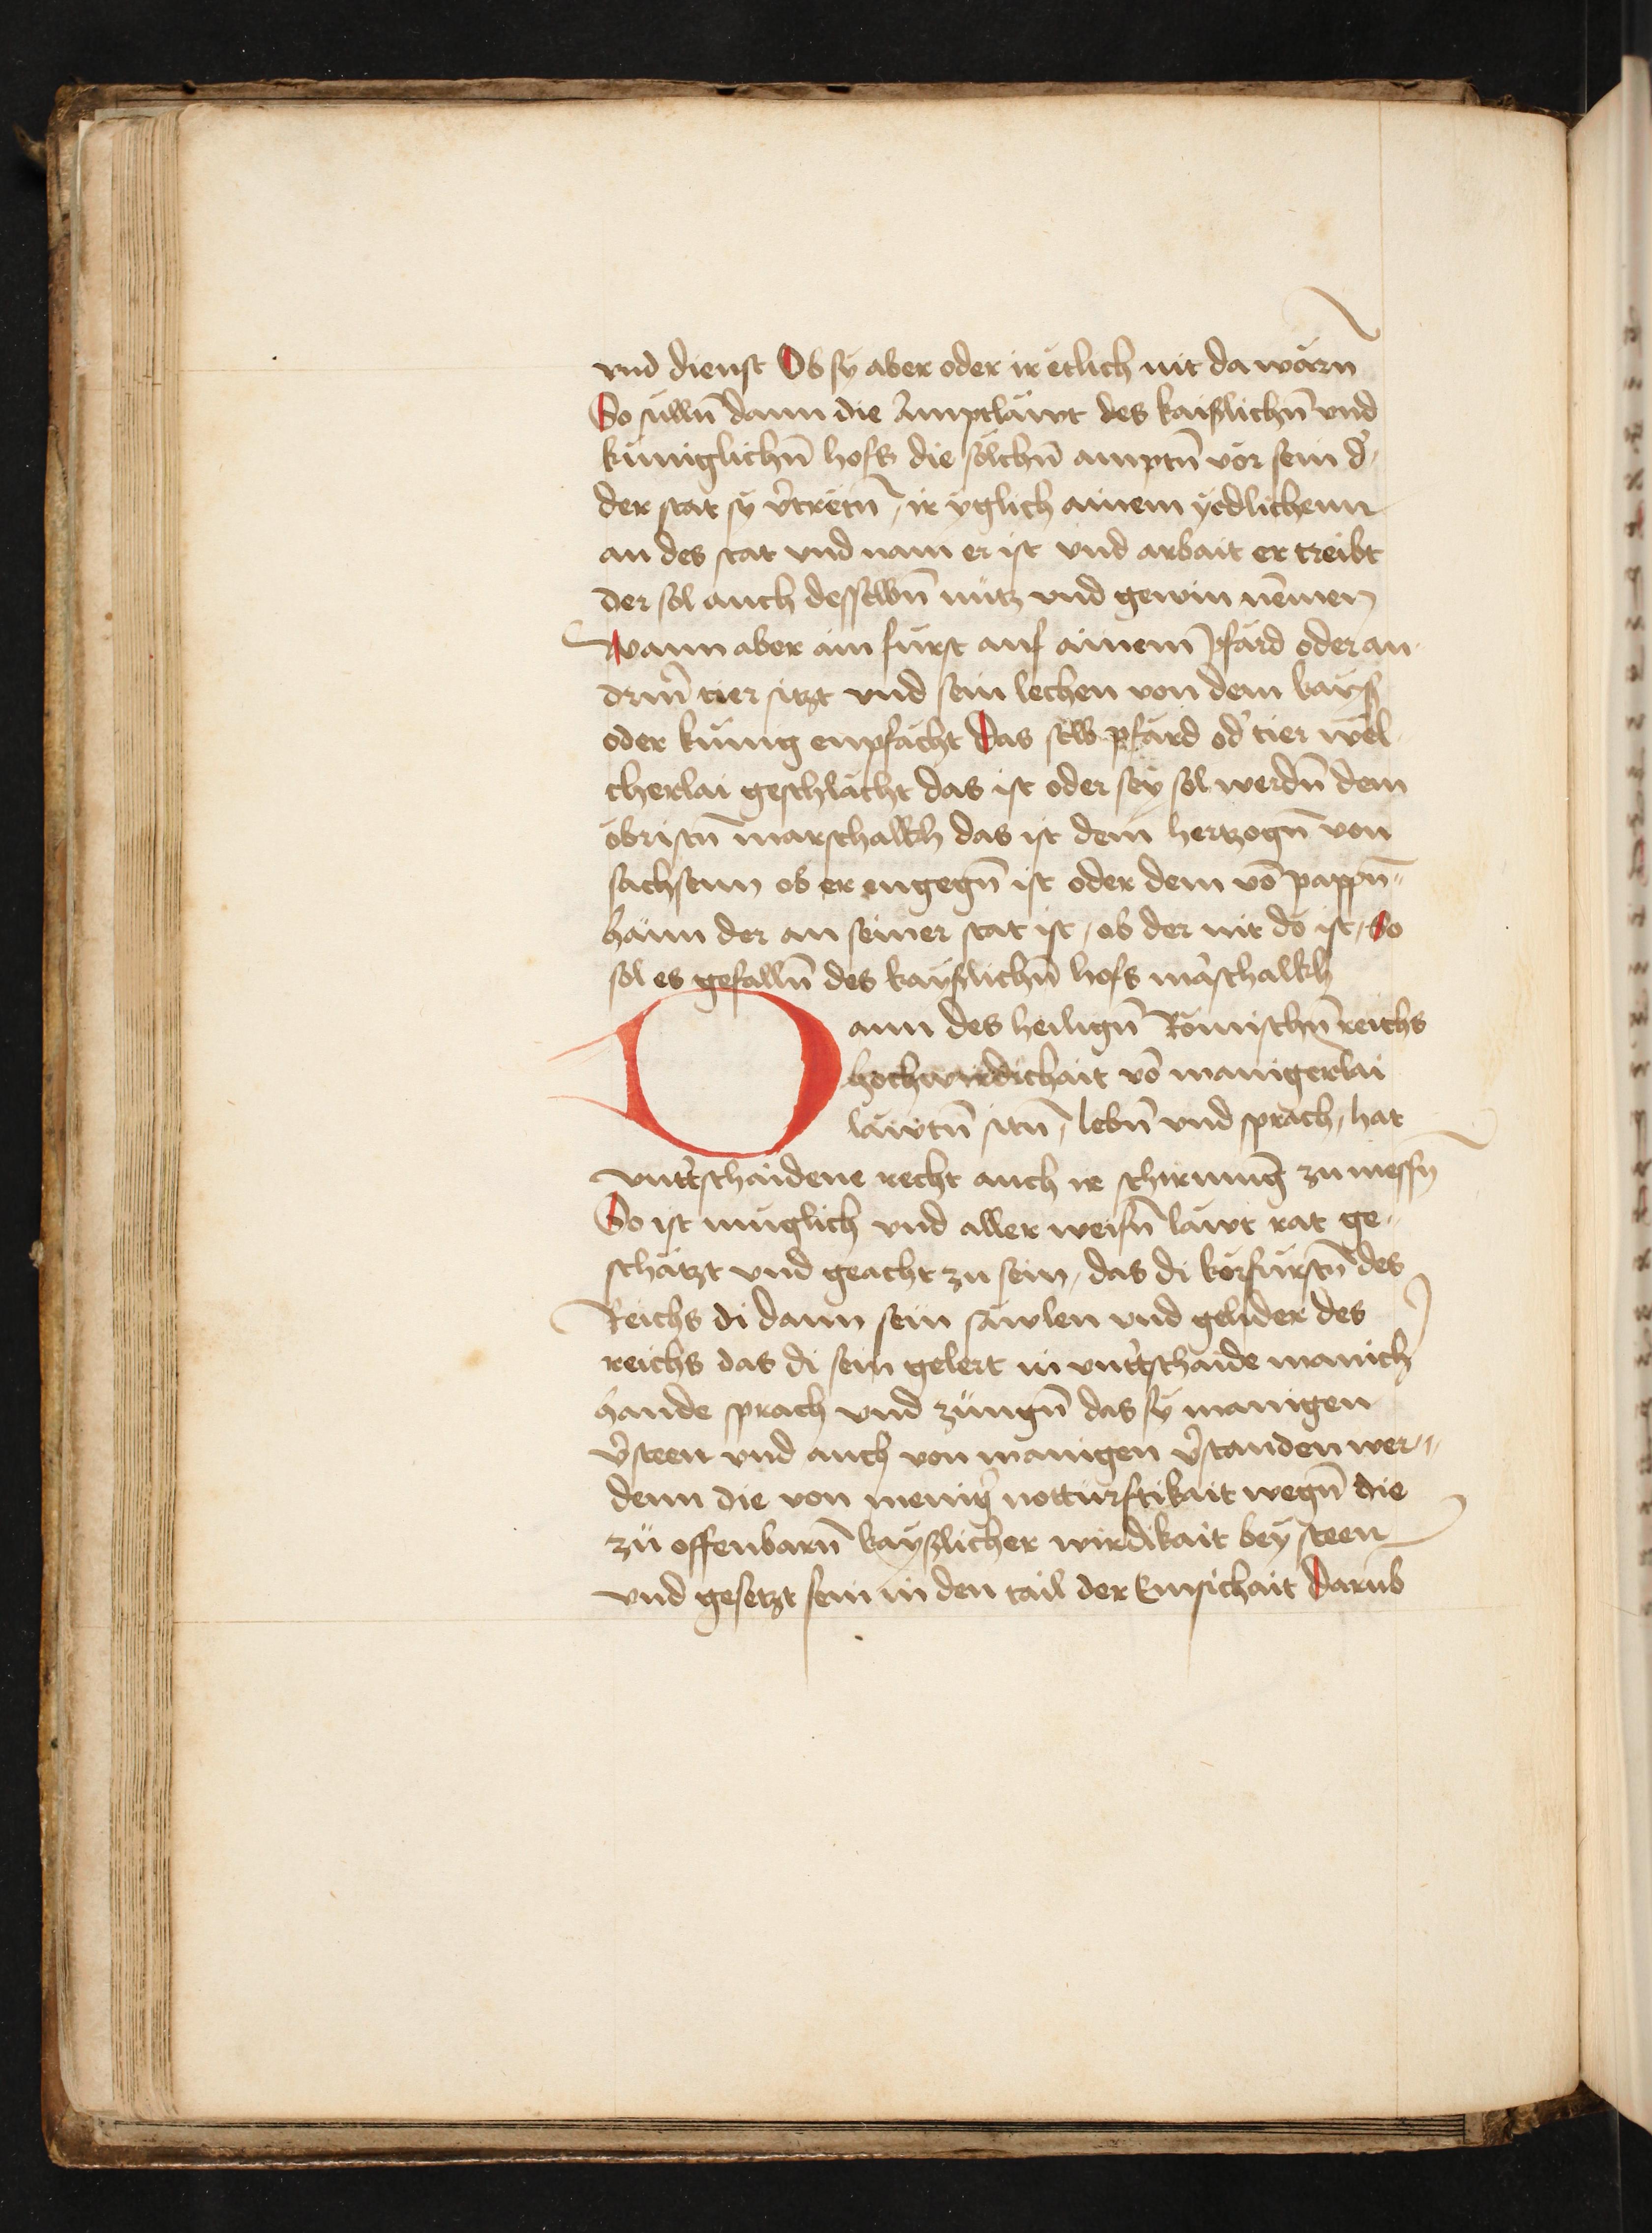 vnd dienst Ob sy aber oder ir etlich nit da wärn
So süllñ dann die Amptläwt des kaißlichñ vnd
küniglichñ hofs die sölchñ amptñ vor sein d'
der stat sy v'tretñ / ir yglich ainem yedlichenn
an des stat vnd nam er ist vnd arbait er treibt
der sol auch desselbñ nutz vnd gewin nemen
Wann aber ain fürst auf ainem pfärd oder an
derm tier sitzt vnd sein lechen von dem kayß
oder künig enpfächt Das selb pfärd od' tier wel
cherlai geschlächt das ist oder sey sol werdñ dem
öbristñ marschalkh das ist dem hertzogñ von
sachsenn ob er engegñ ist oder dem võ pappñ=
häim der an seiner stat ist / ob der nit do ist / So
sol es gefallñ des kayßlichñ hofs m'aschalkh
Dann des heiligñ Römischñ reichs
hochwirdichait võ manigerlai
läwtñ sitñ / lebñ vnd sprach / hat
vntt'schaidene recht auch ir schirmung zumessñ
So ist müglich vnd aller weisñ läwt rat ge=
schätzt vnd geacht zu sein / das di körfürstñ des
Reichs di dann sein säwlen vnd gelider des
reichs das di sein gelert in vntt'schaide manich
hande sprach vnd züngñ das sy manigen
v'steen vnd auch von manigen v'standen wer=
denn die von menig' notturftikait wegñ die
zü offenbarñ kayßlicher wirdikait bey steen
vnd gesetzt sein in den tail der Emsichait Darub